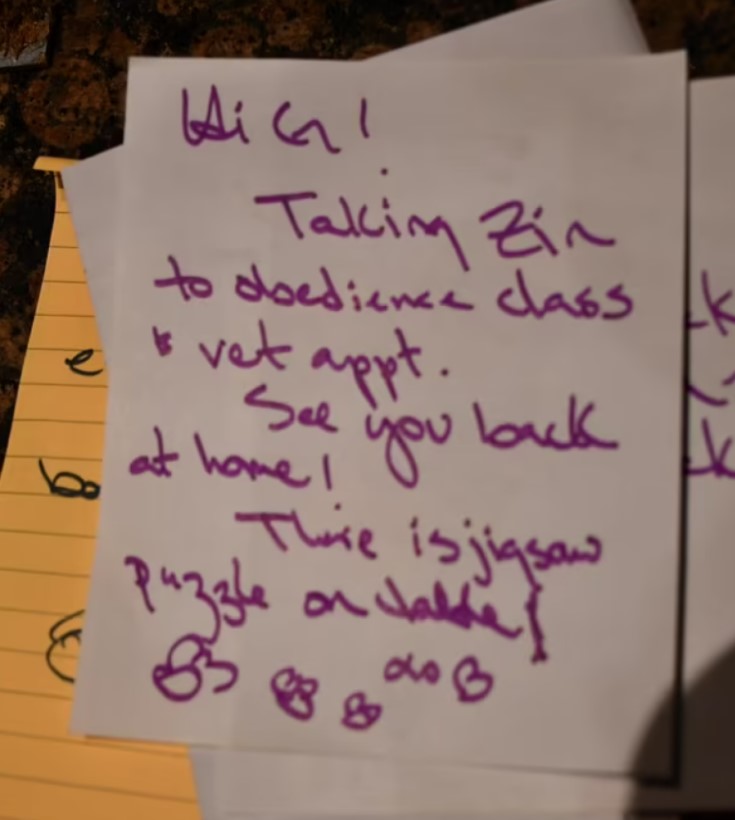 Hi G!
Taking Zin
to obedience class
& vet appt.
See you back
at home!
There is jigsaw
Puzzle on table!
e
b
k
k